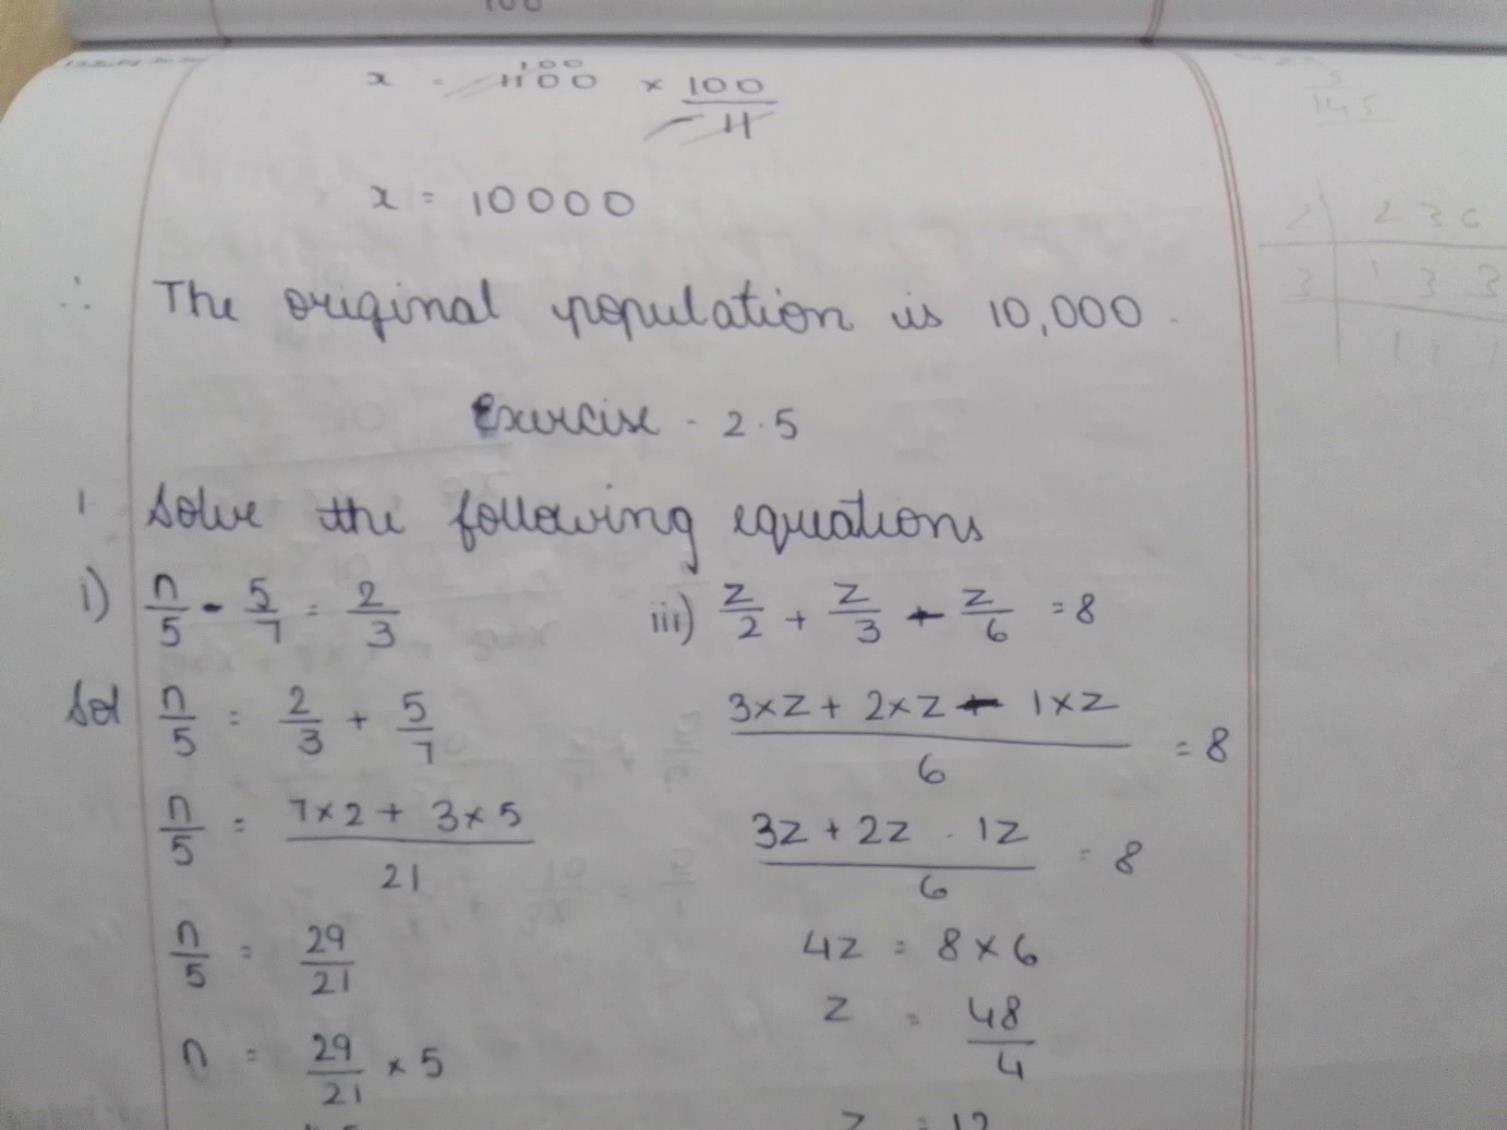 100
x = 1100 × 100/11
100
x = 10000
∴ The original population is 10,000.
Exercise - 2.5
1 Solve the following equations
i) n/5 - 5/7 = 2/3
Sol n/5 = 2/3 + 5/7
n/5 = 7×2 + 3×5/21
n/5 = 29/21
n = 29/21 × 5
iii) z/2 + z/3 - z/6 = 8
3×z + 2×z - 1×z/6 = 8
3z + 2z - 1z/6 = 8
4z = 8×6
z = 48/4
z = 12
5
145
2 | 2 3 6
3 | 1 3 3
1 1 1